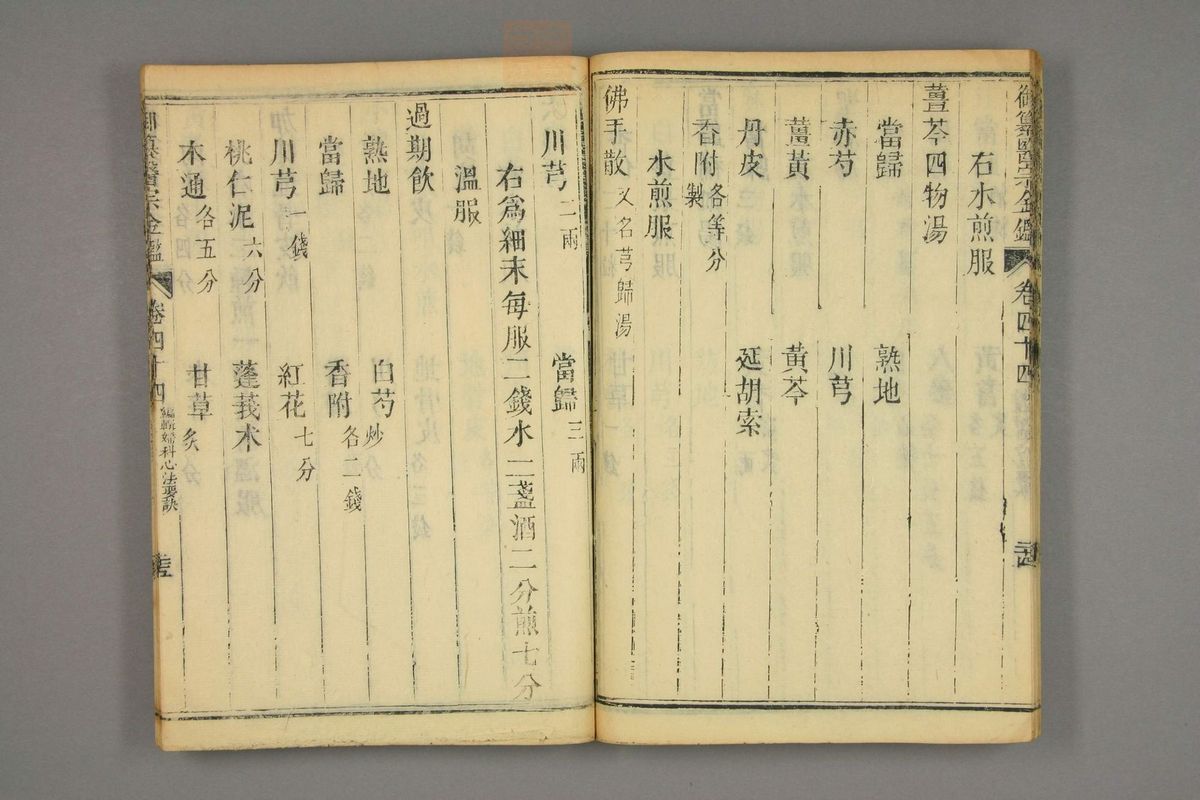 御纂醫宗金鑑 卷四十四
右水煎服
薑芩四物湯
當歸 熟地
赤芍 川芎
薑黃 黃芩
丹皮 延胡索
香附製各等分
水煎服
佛手散又名芎歸湯
川芎二兩 當歸三兩
右爲細末每服二錢水一盞酒二分煎七分
溫服
過期飲
熟地 白芍炒
當歸 香附各二錢
川芎一錢 紅花七分
桃仁泥六分 蓬莪朮
木通各五分 甘草炙
御纂醫宗金鑑 卷四十四 編輯婦科心法要訣